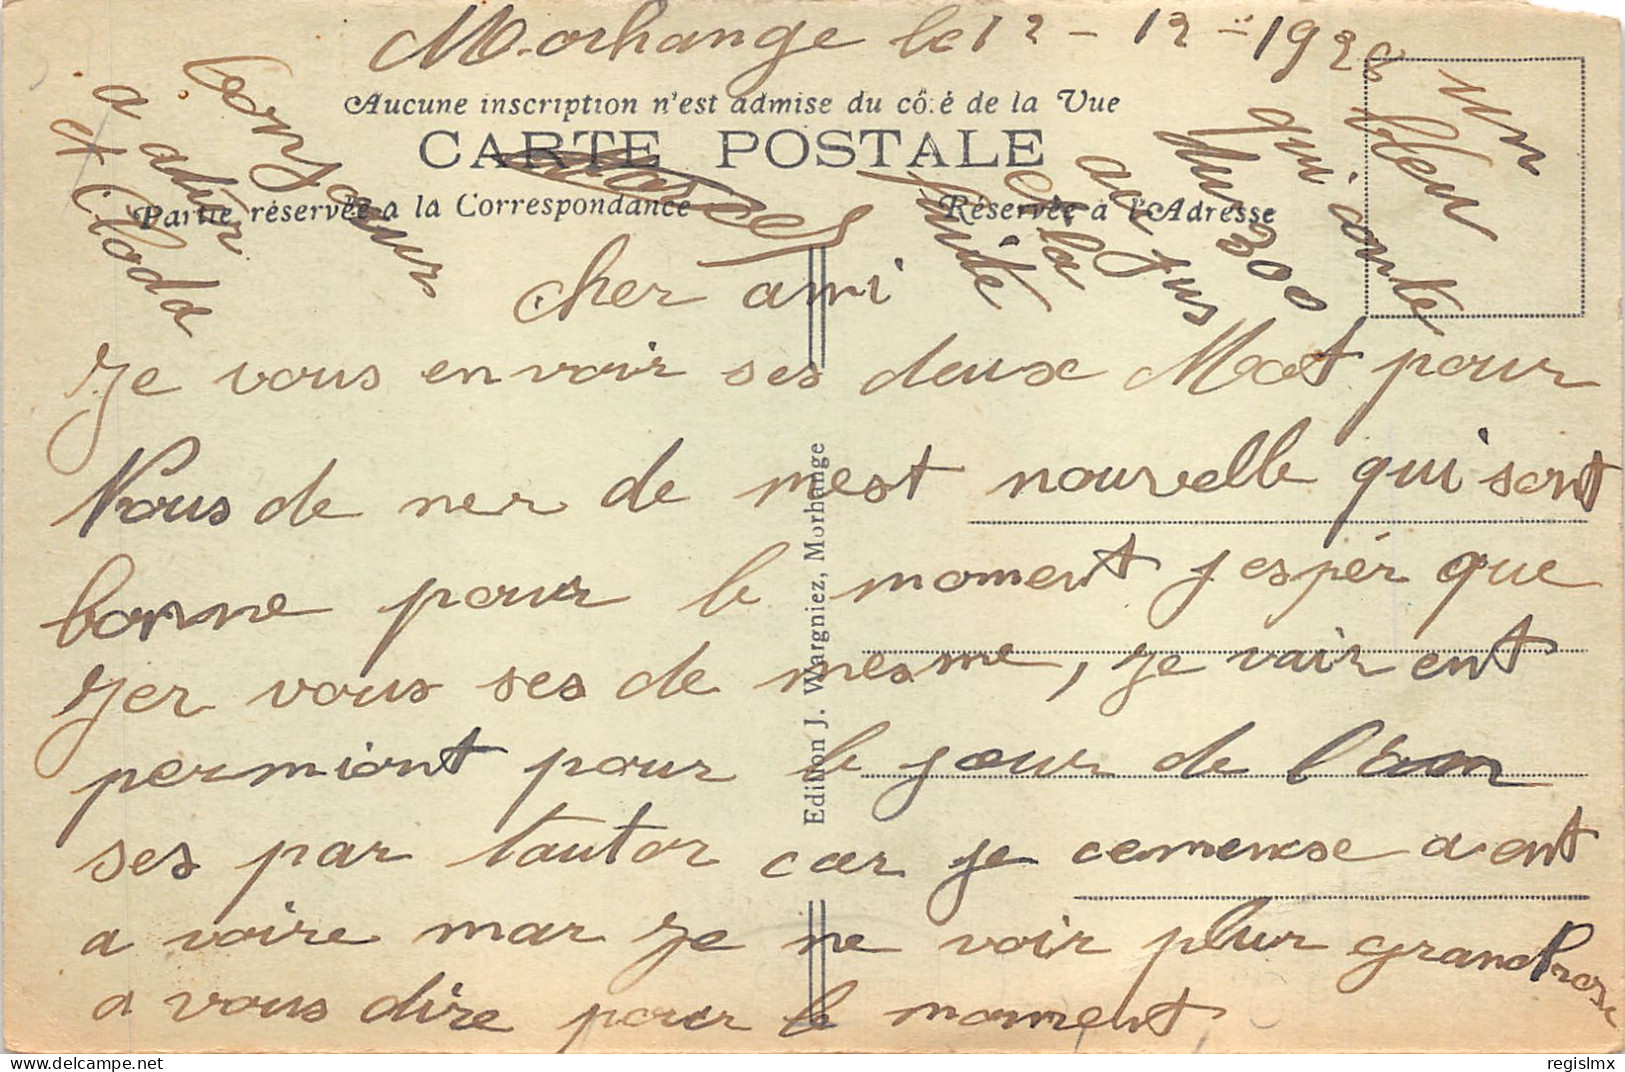 Morhange le 12 - 12 - 1928
Aucune inscription n'est admise du côté de la Vue
CARTE POSTALE
Partie réservée a la Correspondance
Réservée à l'Adresse
bonjour
a
et Cloda
un
bleu
qui conte
dur 300
au jus
et la
suite
Cher ami
Je vous envoir ses deux Mot pour
Vous de ner de mest nouvelle qui sont
bonne pour le moment j espér que
Jer vous ses de mesme, Je vair ent
permiont pour le jour de l'Enn
ses par tautor car je cemense a ent
a voire mar Je ne voir plur grand chose
a vous dire pour le moment,
Edition J. Wargniez, Morhange
regislmx